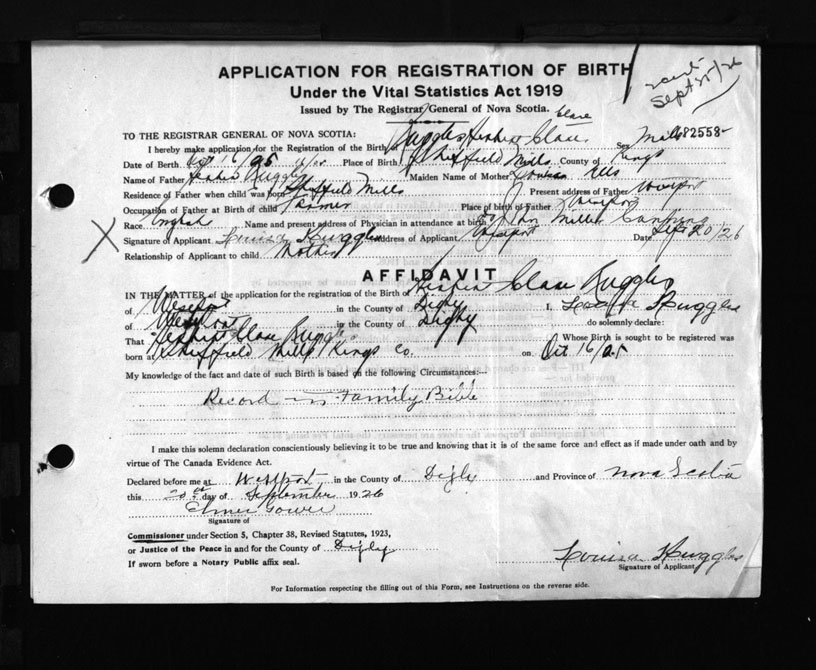 APPLICATION FOR REGISTRATION OF BIRTH
Under the Vital Statistics Act 1919
Issued by The Registrar General of Nova Scotia.
Sept 25/26
Clare
TO THE REGISTRAR GENERAL OF NOVA SCOTIA:
I hereby make application for the Registration of the Birth of Ruggles Clare Sex Male 82558
Date of Birth Oct 16/95 Place of Birth Sheffield Mills County of Kings
Name of Father Ruggles Maiden Name of Mother Louisa Ells
Residence of Father when child was born Sheffield Mills Present address of Father Westport
Occupation of Father at Birth of child Farmer Place of birth of Father Westport
Race English Name and present address of Physician in attendance at birth Dr Miller Canning
Signature of Applicant Louisa Ruggles Address of Applicant Westport Date Sept 20/26
Relationship of Applicant to child Mother
AFFIDAVIT
IN THE MATTER of the application for the registration of the Birth of Clare Ruggles
of Westport in the County of Digby I, Louisa Ruggles
of Westport in the County of Digby do solemnly declare:
That Clare Ruggles Whose Birth is sought to be registered was
born at Sheffield Mills Kings Co. on Oct 16/95
My knowledge of the fact and date of such Birth is based on the following Circumstances:—
Record in Family Bible
I make this solemn declaration conscientiously believing it to be true and knowing that it is of the same force and effect as if made under oath and by
virtue of The Canada Evidence Act.
Declared before me at Westport in the County of Digby and Province of Nova Scotia
this 20th day of September 1926
Elmer Gower
Signature of
Commissioner under Section 5, Chapter 38, Revised Statutes, 1923,
or Justice of the Peace in and for the County of Digby
If sworn before a Notary Public affix seal.
Louisa Ruggles
Signature of Applicant
For Information respecting the filling out of this Form, see Instructions on the reverse side.